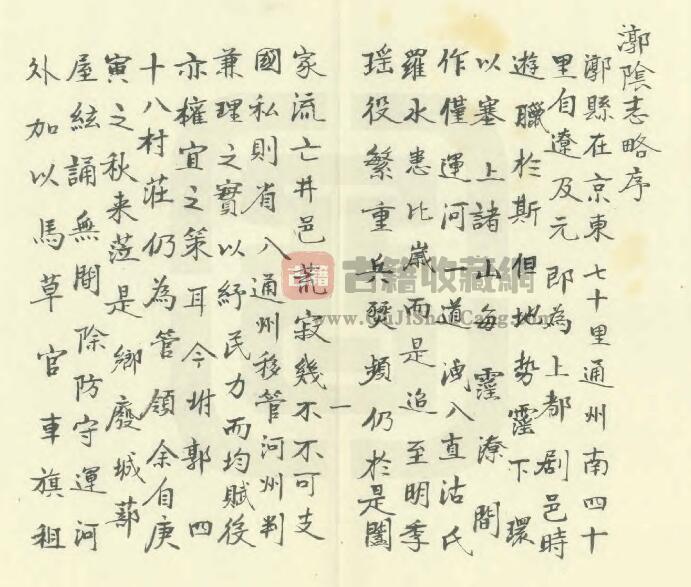 漷陰志略序
漷縣在京東七十里通州南四十
里自遼及元即為上都劇邑時
遊臘於斯但地勢窪下環
以塞上諸山每霪潦間
作僅運河一道洩入直沽氏
羅水患比歲而是迨至明季
瑶役繁重兵燹頻仍於是闔
一
家流亡井邑荒寂幾不不可支
國私則省入通州移管河州判
兼理之實以紓民力而均賦役
亦權宜之策耳今坿郭四
十八村莊仍為管領余自庚
寅之秋来蒞是鄉廢城蔀
屋絃誦無聞除防守運河
外加以馬草官車旗租
古籍
古籍收藏網
www.GuJiShouCang.com